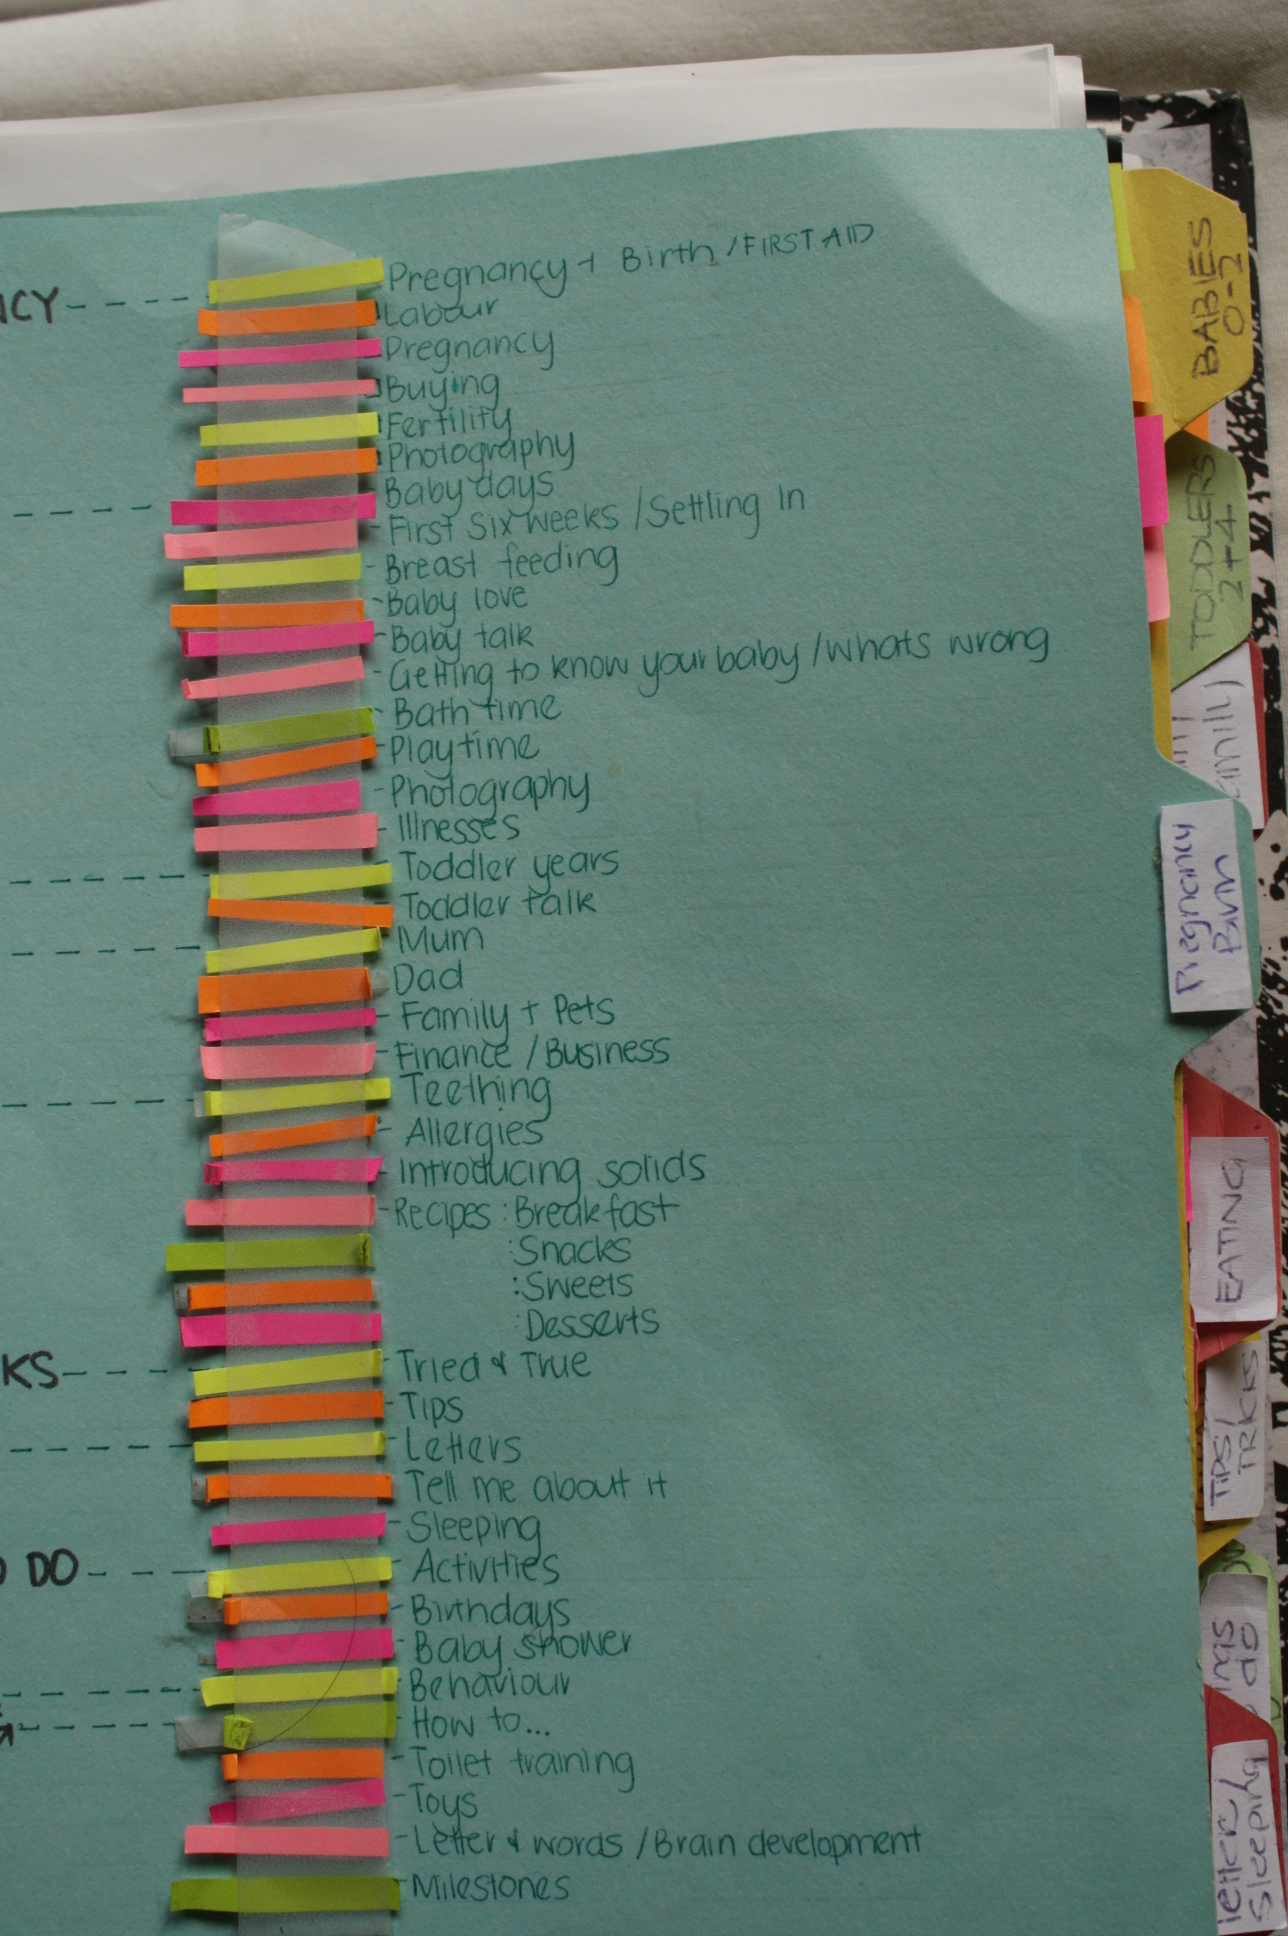 Pregnancy + Birth / FIRST AID
Labour
Pregnancy
Buying
Fertility
Photography
Baby days
First six weeks / Settling In
- Breast feeding
- Baby love
- Baby talk
- Getting to know your baby / whats wrong
- Bath time
- Playtime
- Photography
- Illnesses
Toddler years
Toddler talk
Mum
Dad
- Family + Pets
- Finance / Business
Teething
- Allergies
- Introducing solids
- Recipes : Breakfast
: Snacks
: Sweets
: Desserts
- Tried & True
- Tips
- Letters
- Tell me about it
- Sleeping
- Activities
- Birthdays
- Baby shower
- Behaviour
- How to...
- Toilet training
- Toys
- Letter & words / Brain development
- Milestones
NCY
KS
DO
BABIES
0-2
TODDLERS
2+4
Pregnancy
Birth
EATING
TIPS/
TRICKS
do
sleeping